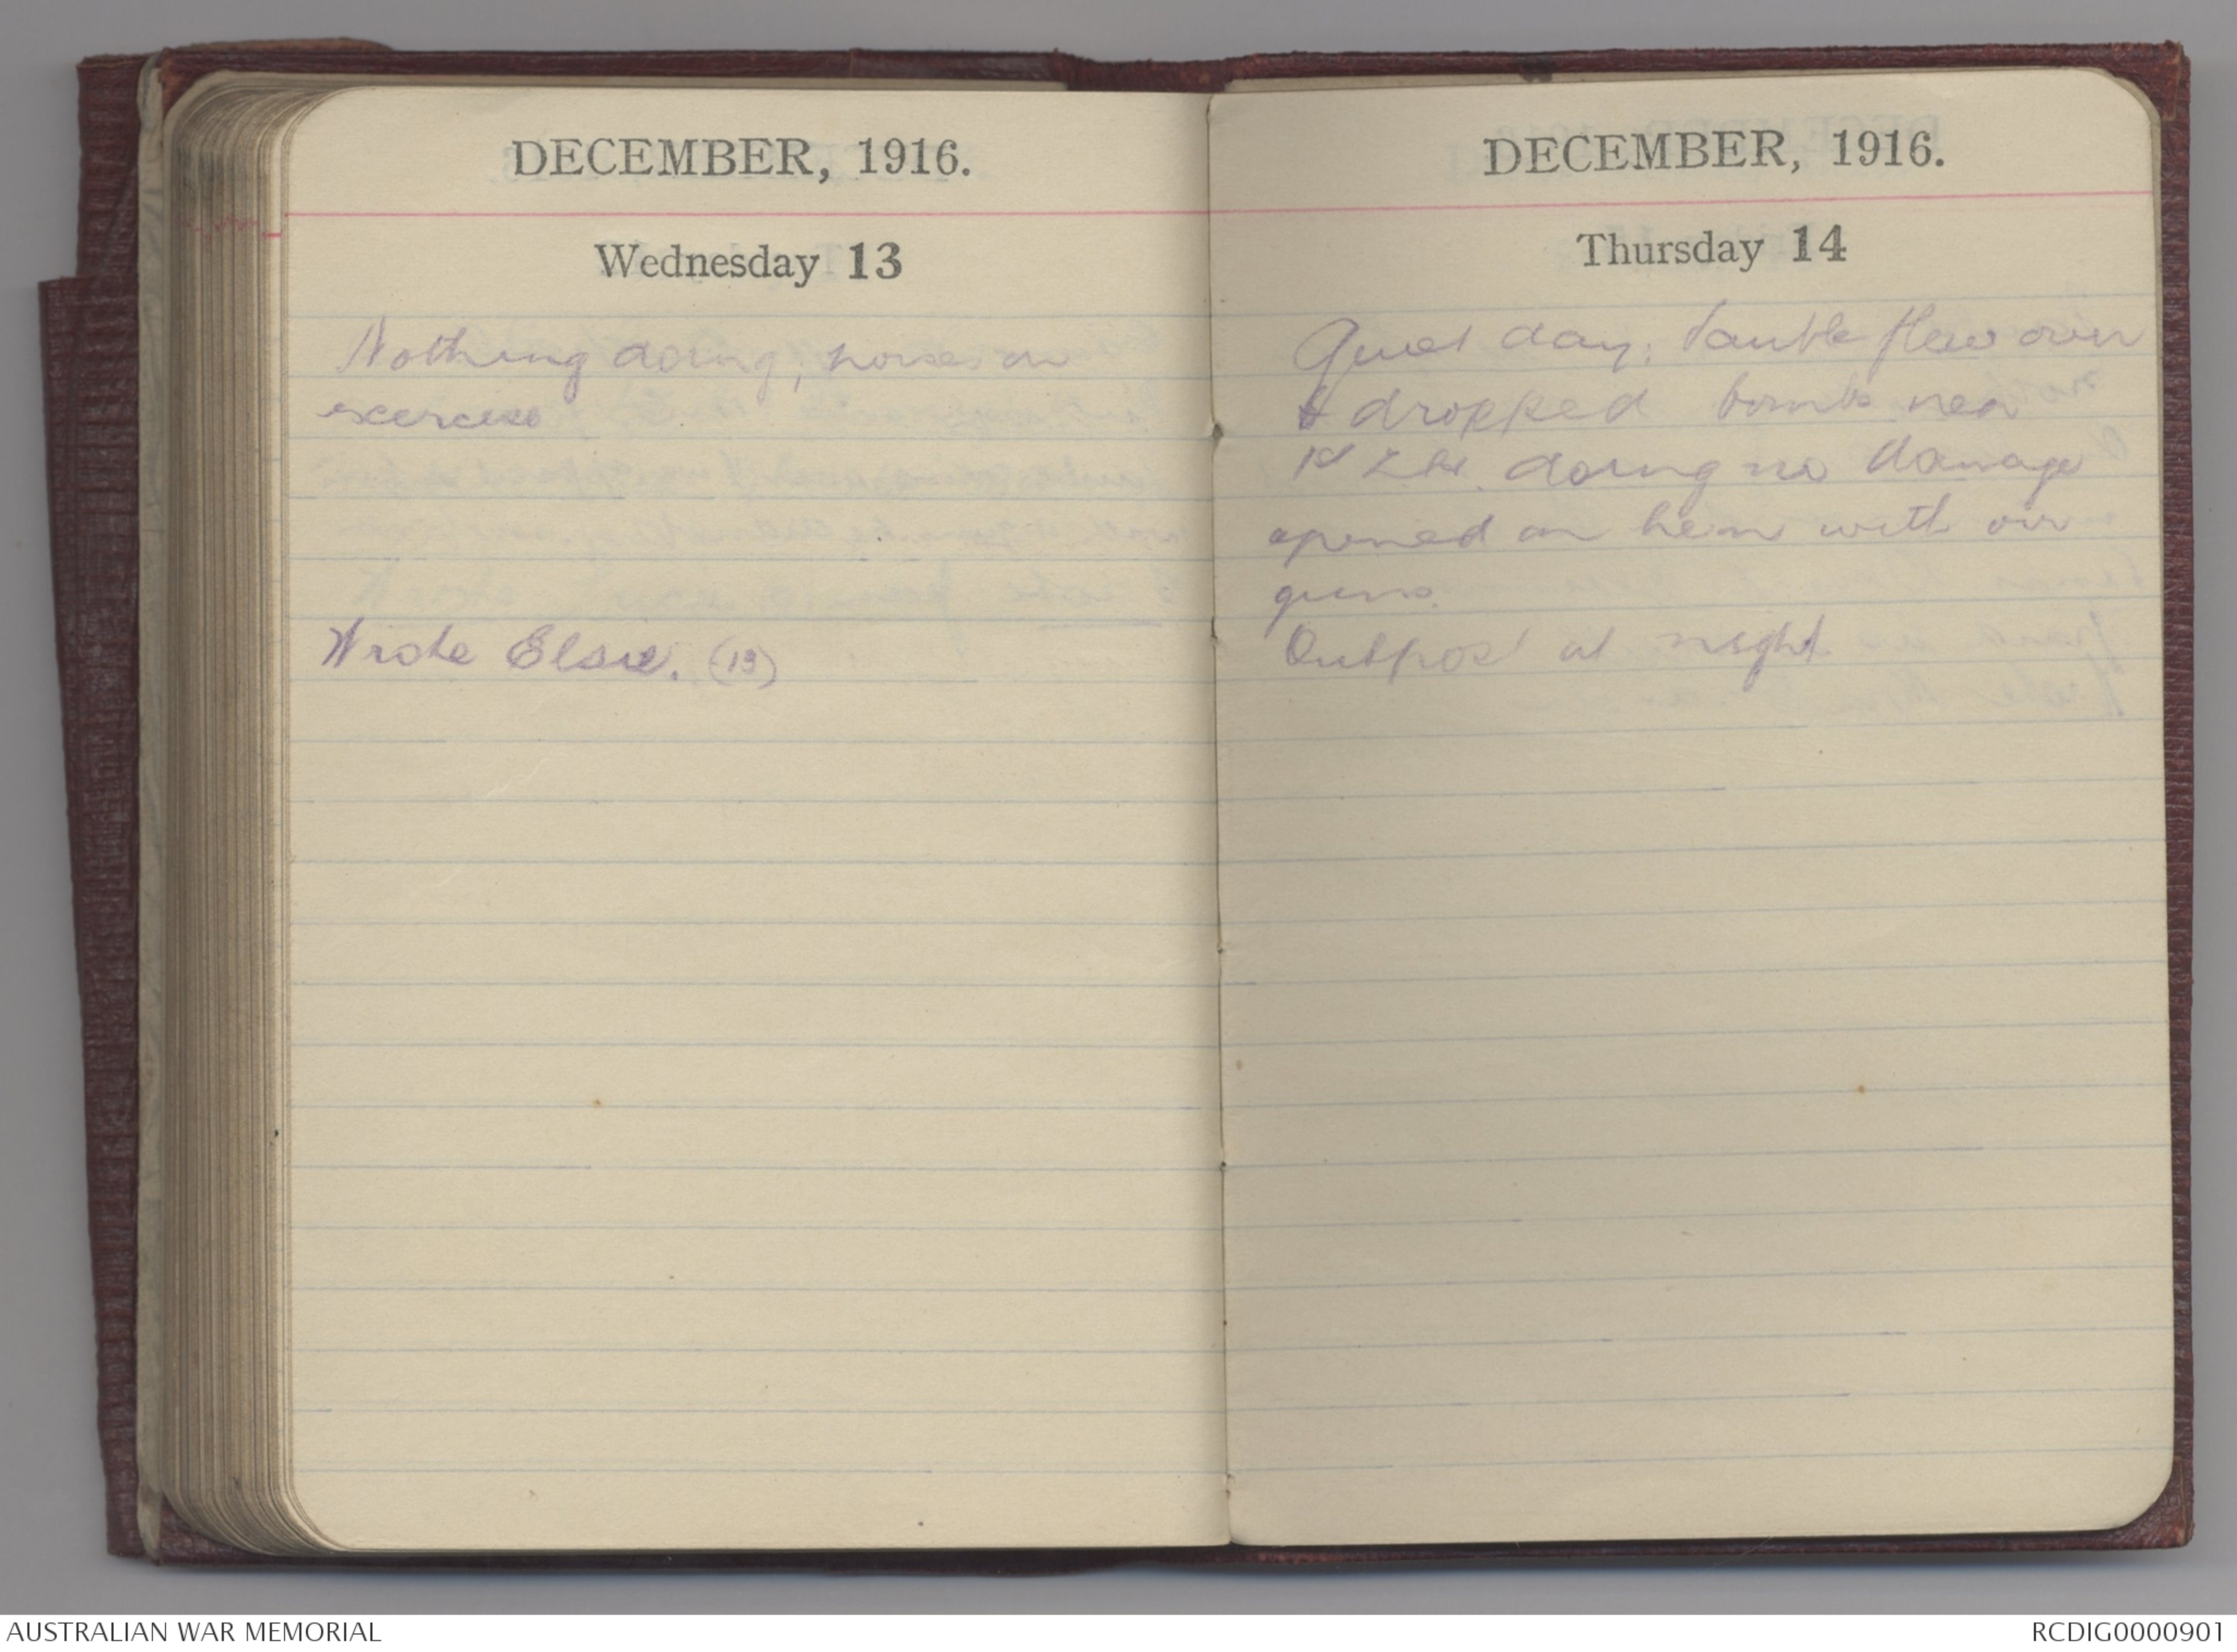 DECEMBER, 1916.
Wednesday 13
Nothing doing, horses on
exercise
Wrote Elsie. (13)
DECEMBER, 1916.
Thursday 14
Quiet day; Taube flew over
& dropped bombs near
1st L.H. doing no damage
opened on him with our
guns.
Outpost at night
AUSTRALIAN WAR MEMORIAL
RCDIG0000901